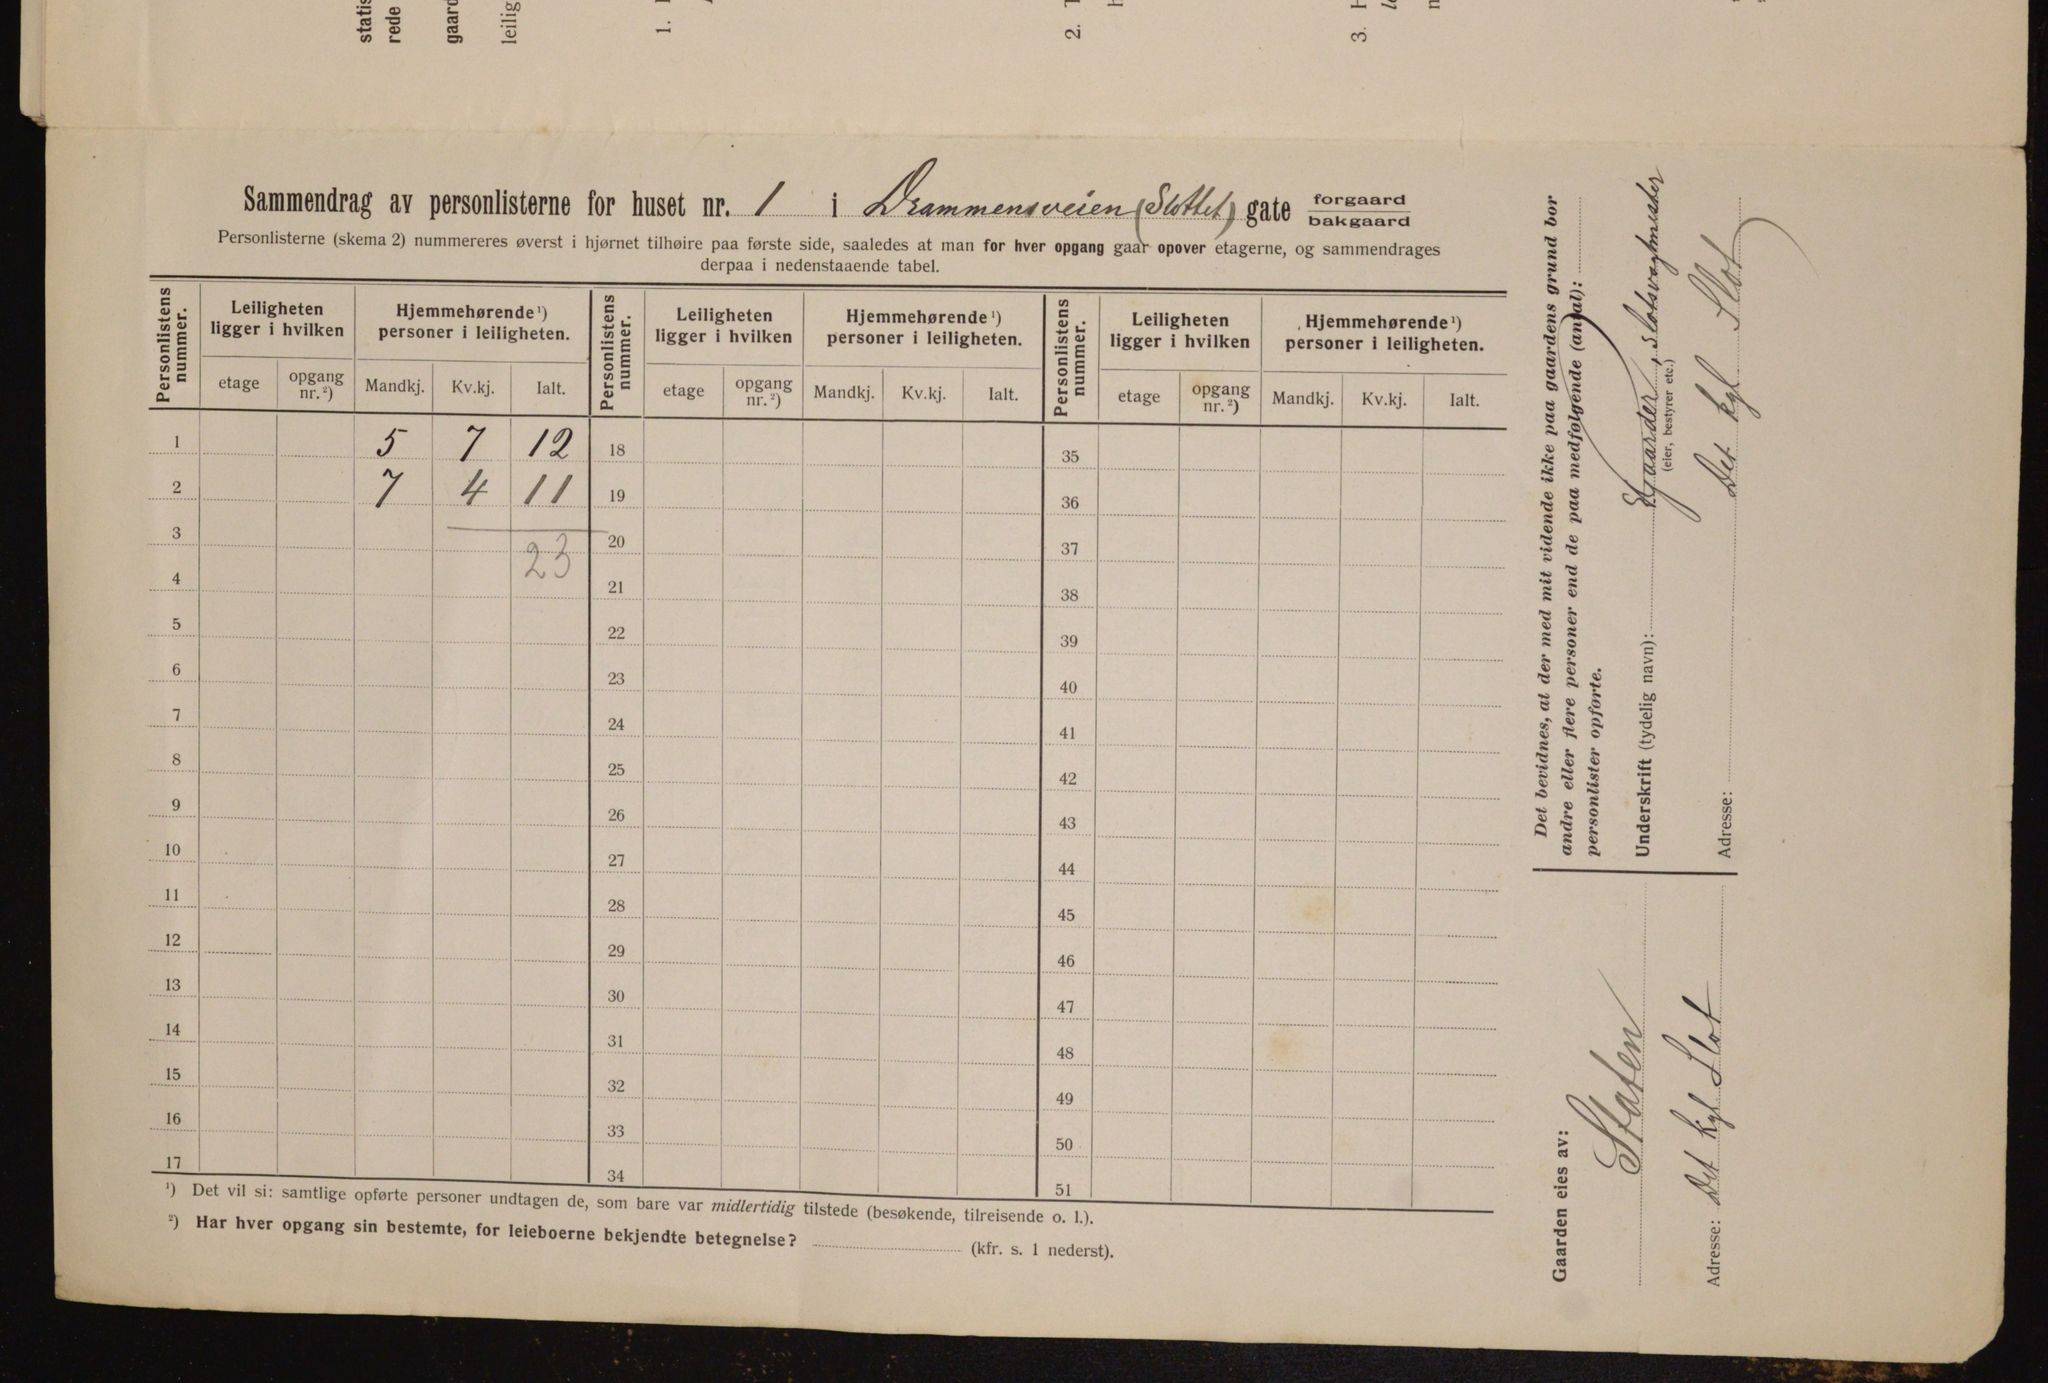 statis
rede
gaard
leilig
1.
2.
3.
Sammendrag av personlisterne for huset nr. 1 i Drammensveien (Slottet) gate forgaard
bakgaard
Personlisterne (skema 2) nummereres øverst i hjørnet tilhøire paa første side, saaledes at man for hver opgang gaar opover etagerne, og sammendrages
derpaa i nedenstaaende tabel.
Personlistens nummer. Leiligheten ligger i hvilken Hjemmehørende ¹) personer i leiligheten. Personlistens nummer. Leiligheten ligger i hvilken Hjemmehørende ¹) personer i leiligheten. Personlistens nummer. Leiligheten ligger i hvilken Hjemmehørende ¹) personer i leiligheten.
etage opgang nr. ²) Mandkj. Kv.kj. Ialt. etage opgang nr. ²) Mandkj. Kv.kj. Ialt. etage opgang nr. ²) Mandkj. Kv.kj. Ialt.
1 5 7 12 18 35
2 7 4 11 19 36
3 23 20 37
4 21 38
5 22 39
6 23 40
7 24 41
8 25 42
9 26 43
10 27 44
11 28 45
12 29 46
13 30 47
14 31 48
15 32 49
16 33 50
17 34 51
¹) Det vil si: samtlige opførte personer undtagen de, som bare var midlertidig tilstede (besøkende, tilreisende o. l.).
²) Har hver opgang sin bestemte, for leieboerne bekjendte betegnelse? (kfr. s. 1 nederst).
Gaarden eies av:
Staten
Adresse: Det kgl Slot
Det bevidnes, at der med mit vidende ikke paa gaardens grund bor
andre eller flere personer end de paa medfølgende (antal):
personlister opførte.
Underskrift (tydelig navn): Gaarder, Slotsvagtmester
(eier, bestyrer etc.)
Adresse: Det kgl Slot